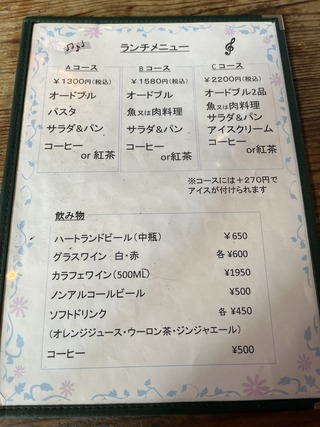 ランチメニュー
Aコース
￥1300円(税込)
オードブル
パスタ
サラダ&パン
コーヒー
or 紅茶
Bコース
￥1580円(税込)
オードブル
魚又は肉料理
サラダ&パン
コーヒー
or 紅茶
Cコース
￥2200円(税込)
オードブル2品
魚又は肉料理
サラダ&パン
アイスクリーム
コーヒー
or 紅茶
※コースには+270円で
アイスが付けられます
飲み物
ハートランドビール(中瓶) ￥650
グラスワイン 白・赤 各¥600
カラフェワイン(500ML) ¥1950
ノンアルコールビール ¥500
ソフトドリンク 各 ¥450
(オレンジジュース・ウーロン茶・ジンジャエール)
コーヒー ¥500